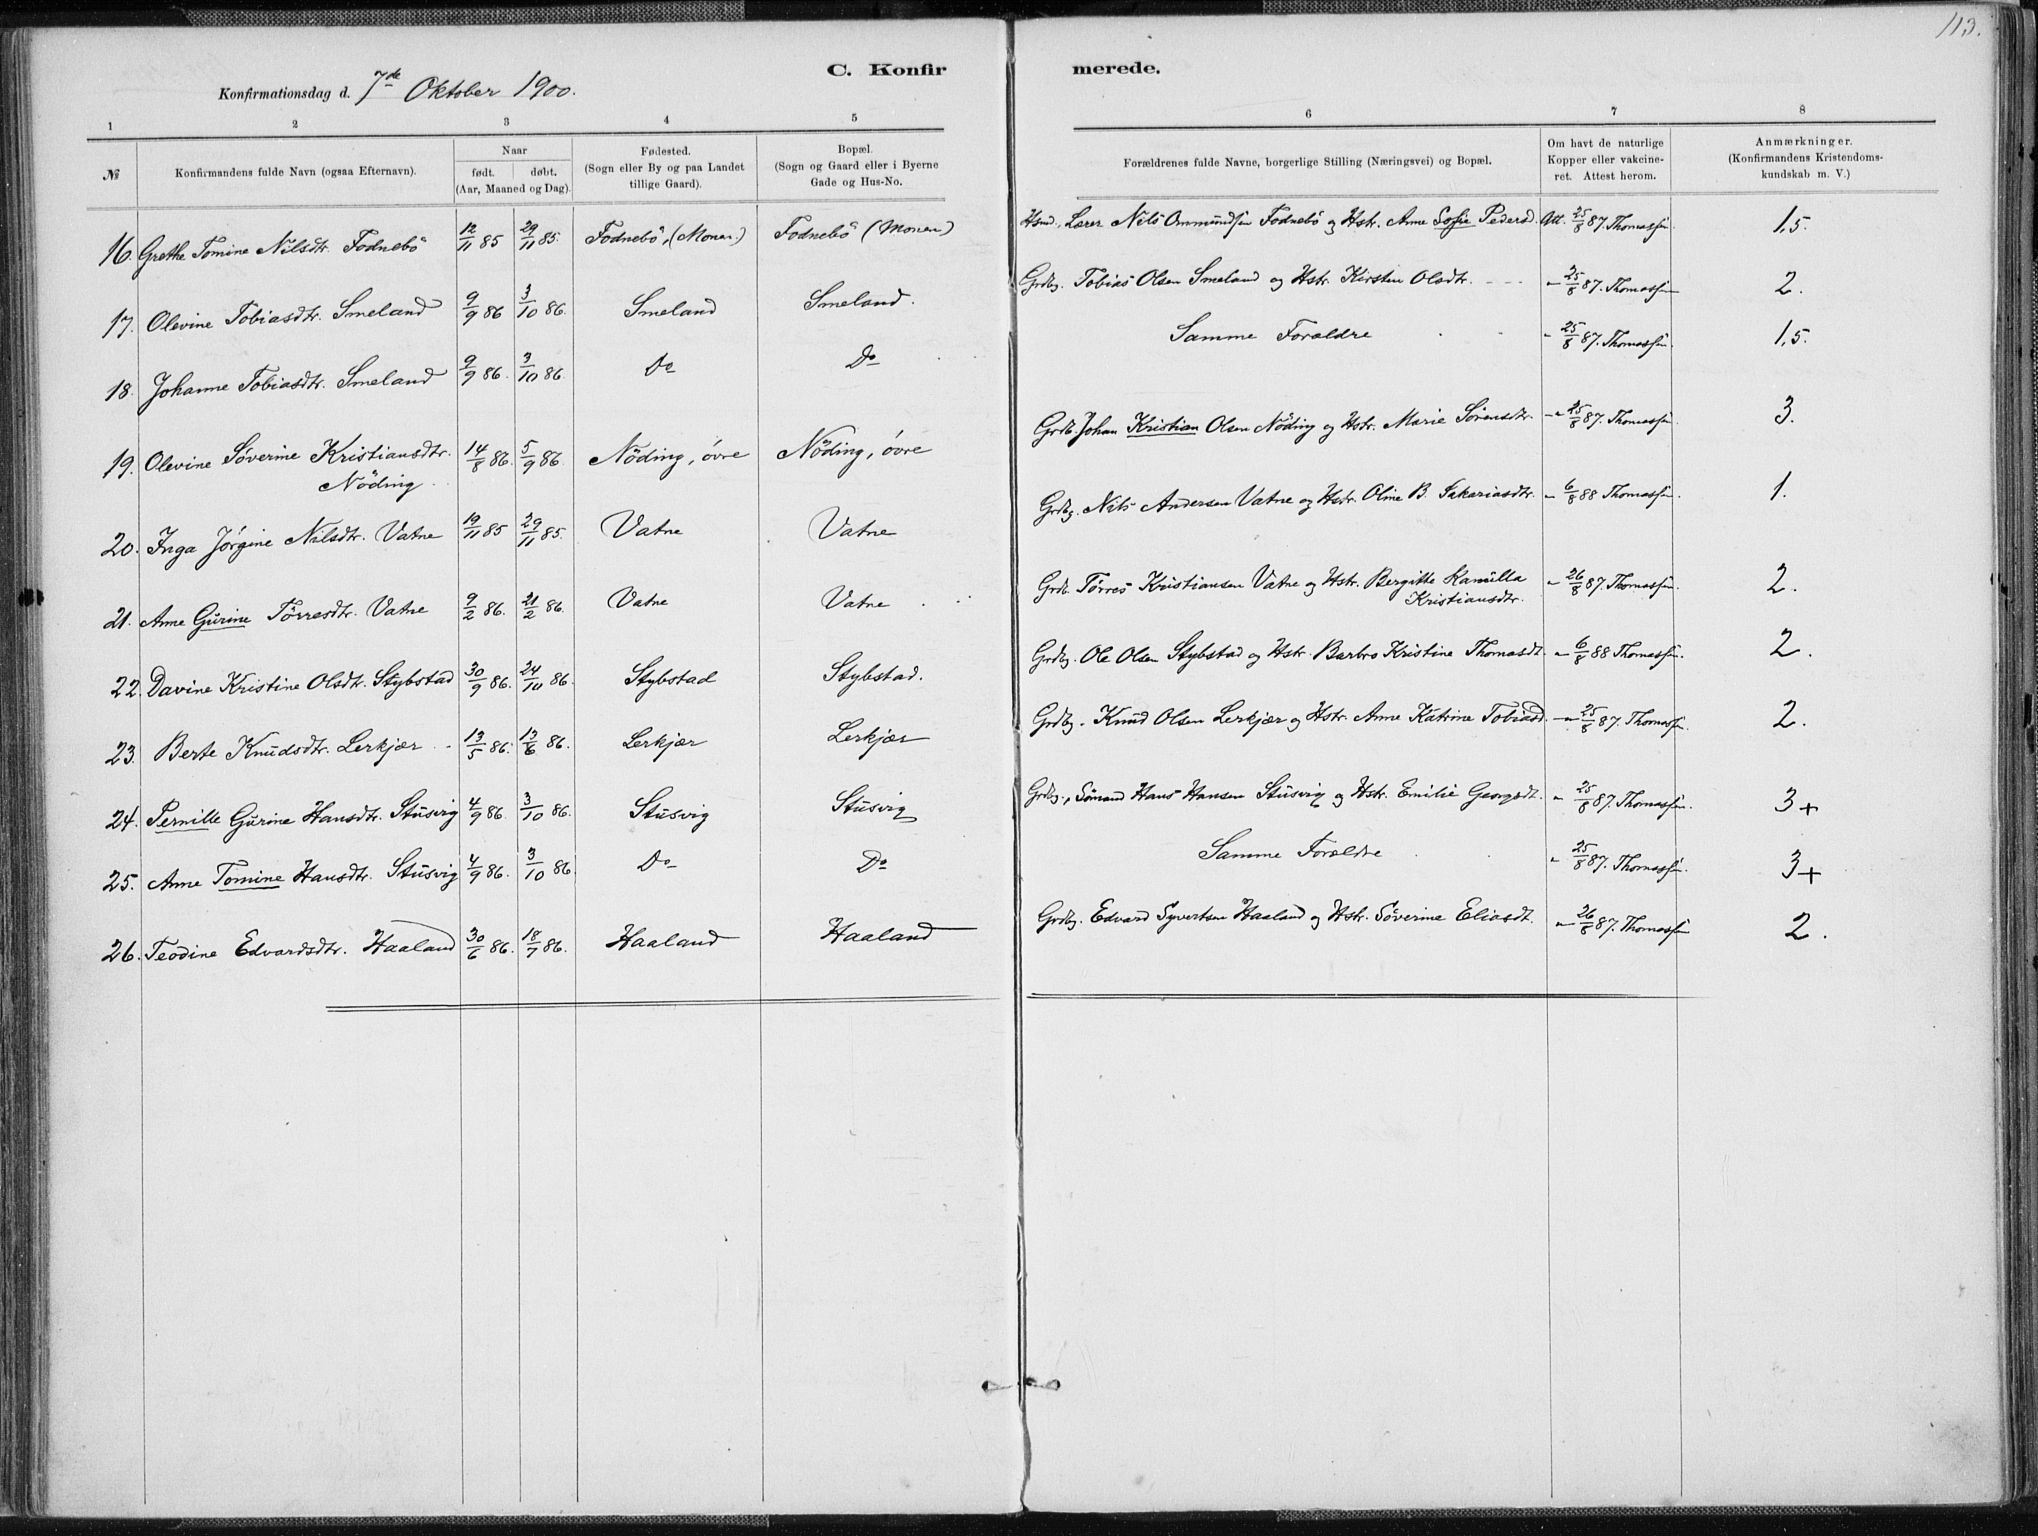 113.
C. Konfir merede.
Konfirmationsdag d. 7de Oktober 1900.
1 2 3 4 5 6 7 8
№ Konfirmandens fulde Navn (ogsaa Efternavn). Naar født. døbt. (Aar, Maaned og Dag). Fødested. (Sogn eller By og paa Landet tillige Gaard). Bopæl. (Sogn og Gaard eller i Byerne Gade og Hus-No. Forældrenes fulde Navne, borgerlige Stilling (Næringsvei) og Bopæl. Om havt de naturlige Kopper eller vakcineret. Attest herom. Anmærkninger. (Konfirmandens Kristendomskundskab m. V.)
16. Grethe Tomine Nilsdtr. Fodnebö 12/11 85 29/11 85. Fodnebö, (Monen) Fodnebö (Monen) Hsmd., Lærer Nils Ommundsen Fodnebö og Hstr. Anne Sofie Pedersd. Att. 25/8 87. Thomassen. 1,5.
17. Olevine Tobiasdtr. Smeland 9/9 86 3/10 86. Smeland Smeland. Grdbg. Tobias Olsen Smeland og Hstr. Kirsten Olsdtr. - - - " 25/8 87. Thomassen 2.
18. Johanne Tobiasdtr. Smeland 9/9 86. 3/10 86. Do Do Samme Forældre " 25/8 87. Thomassen. 1,5.
19. Olevine Söverine Kristiansdtr. Nöding. 14/8 86. 5/9 86. Nöding, övre Nöding, övre Grdb. Johan Kristian Olsen Nöding og Hstr. Marie Sörensdtr. " 25/8 87. Thomassen. 3.
20. Inga Jörgine Nilsdtr. Vatne 19/11 85 29/11 85. Vatne Vatne Grdbg. Nils Andersen Vatne og Hstr. Oline B. Sakariasdtr. " 6/8 88 Thomassen. 1.
21. Anne Gurine Törresdtr. Vatne 9/2 86. 21/2 86. Vatne Vatne Grdb. Törres Kristiansen Vatne og Hstr. Bergitte Kamilla Kristiansdtr. " 26/8 87. Thomassen. 2.
22. Davine Kristine Olsdtr. Stybstad 30/9 86. 24/10 86. Stybstad Stybstad. Grdbg. Ole Olsen Stybstad og Hstr. Barbro Kristine Thomasdt. " 6/8 88 Thomassen. 2.
23. Berte Knudsdtr. Lerkjær 13/5 86. 13/6 86. Lerkjær Lerkjær Grdbg. Knud Olsen Lerkjær og Hstr. Anne Katrine Tobiasd. " 25/8 87. Thomassen. 2.
24. Pernille Gurine Hansdtr. Stusvig 4/9 86. 3/10 86. Stusvig Stusvig Grdbg., Sömand Hans Hansen Stusvig og Hstr. Emilie Georgsdt. " 25/8 87. Thomassen. 3+
25. Anne Tomine Hansdtr. Stusvig 4/9 86. 3/10 86. Do Do Samme Forældre " 25/8 87. Thomassen. 3+
26. Teodine Edvardsdtr. Haaland 30/6 86. 18/7 86. Haaland Haaland Grdbg. Edvard Syvertsen Haaland og Hstr. Söverine Eliasdt. " 26/8 87. Thomassen 2.